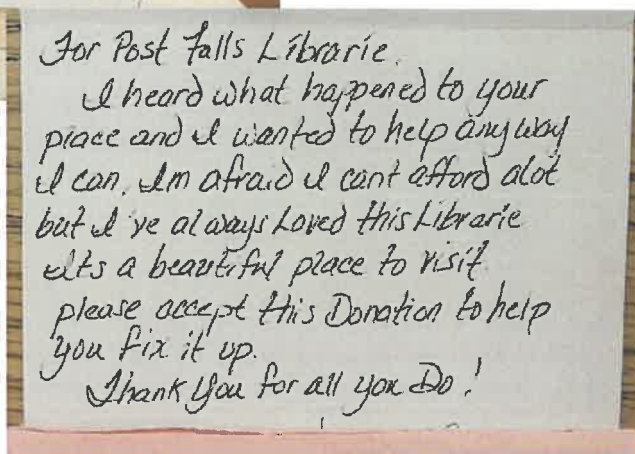 For Post Falls Librarie.
I heard what happened to your
place and I wanted to help any way
I can. Im afraid I cant afford alot
but I've always Loved this Librarie
Its a beautiful place to visit
please accept this Donation to help
you fix it up.
Thank You for all you Do!